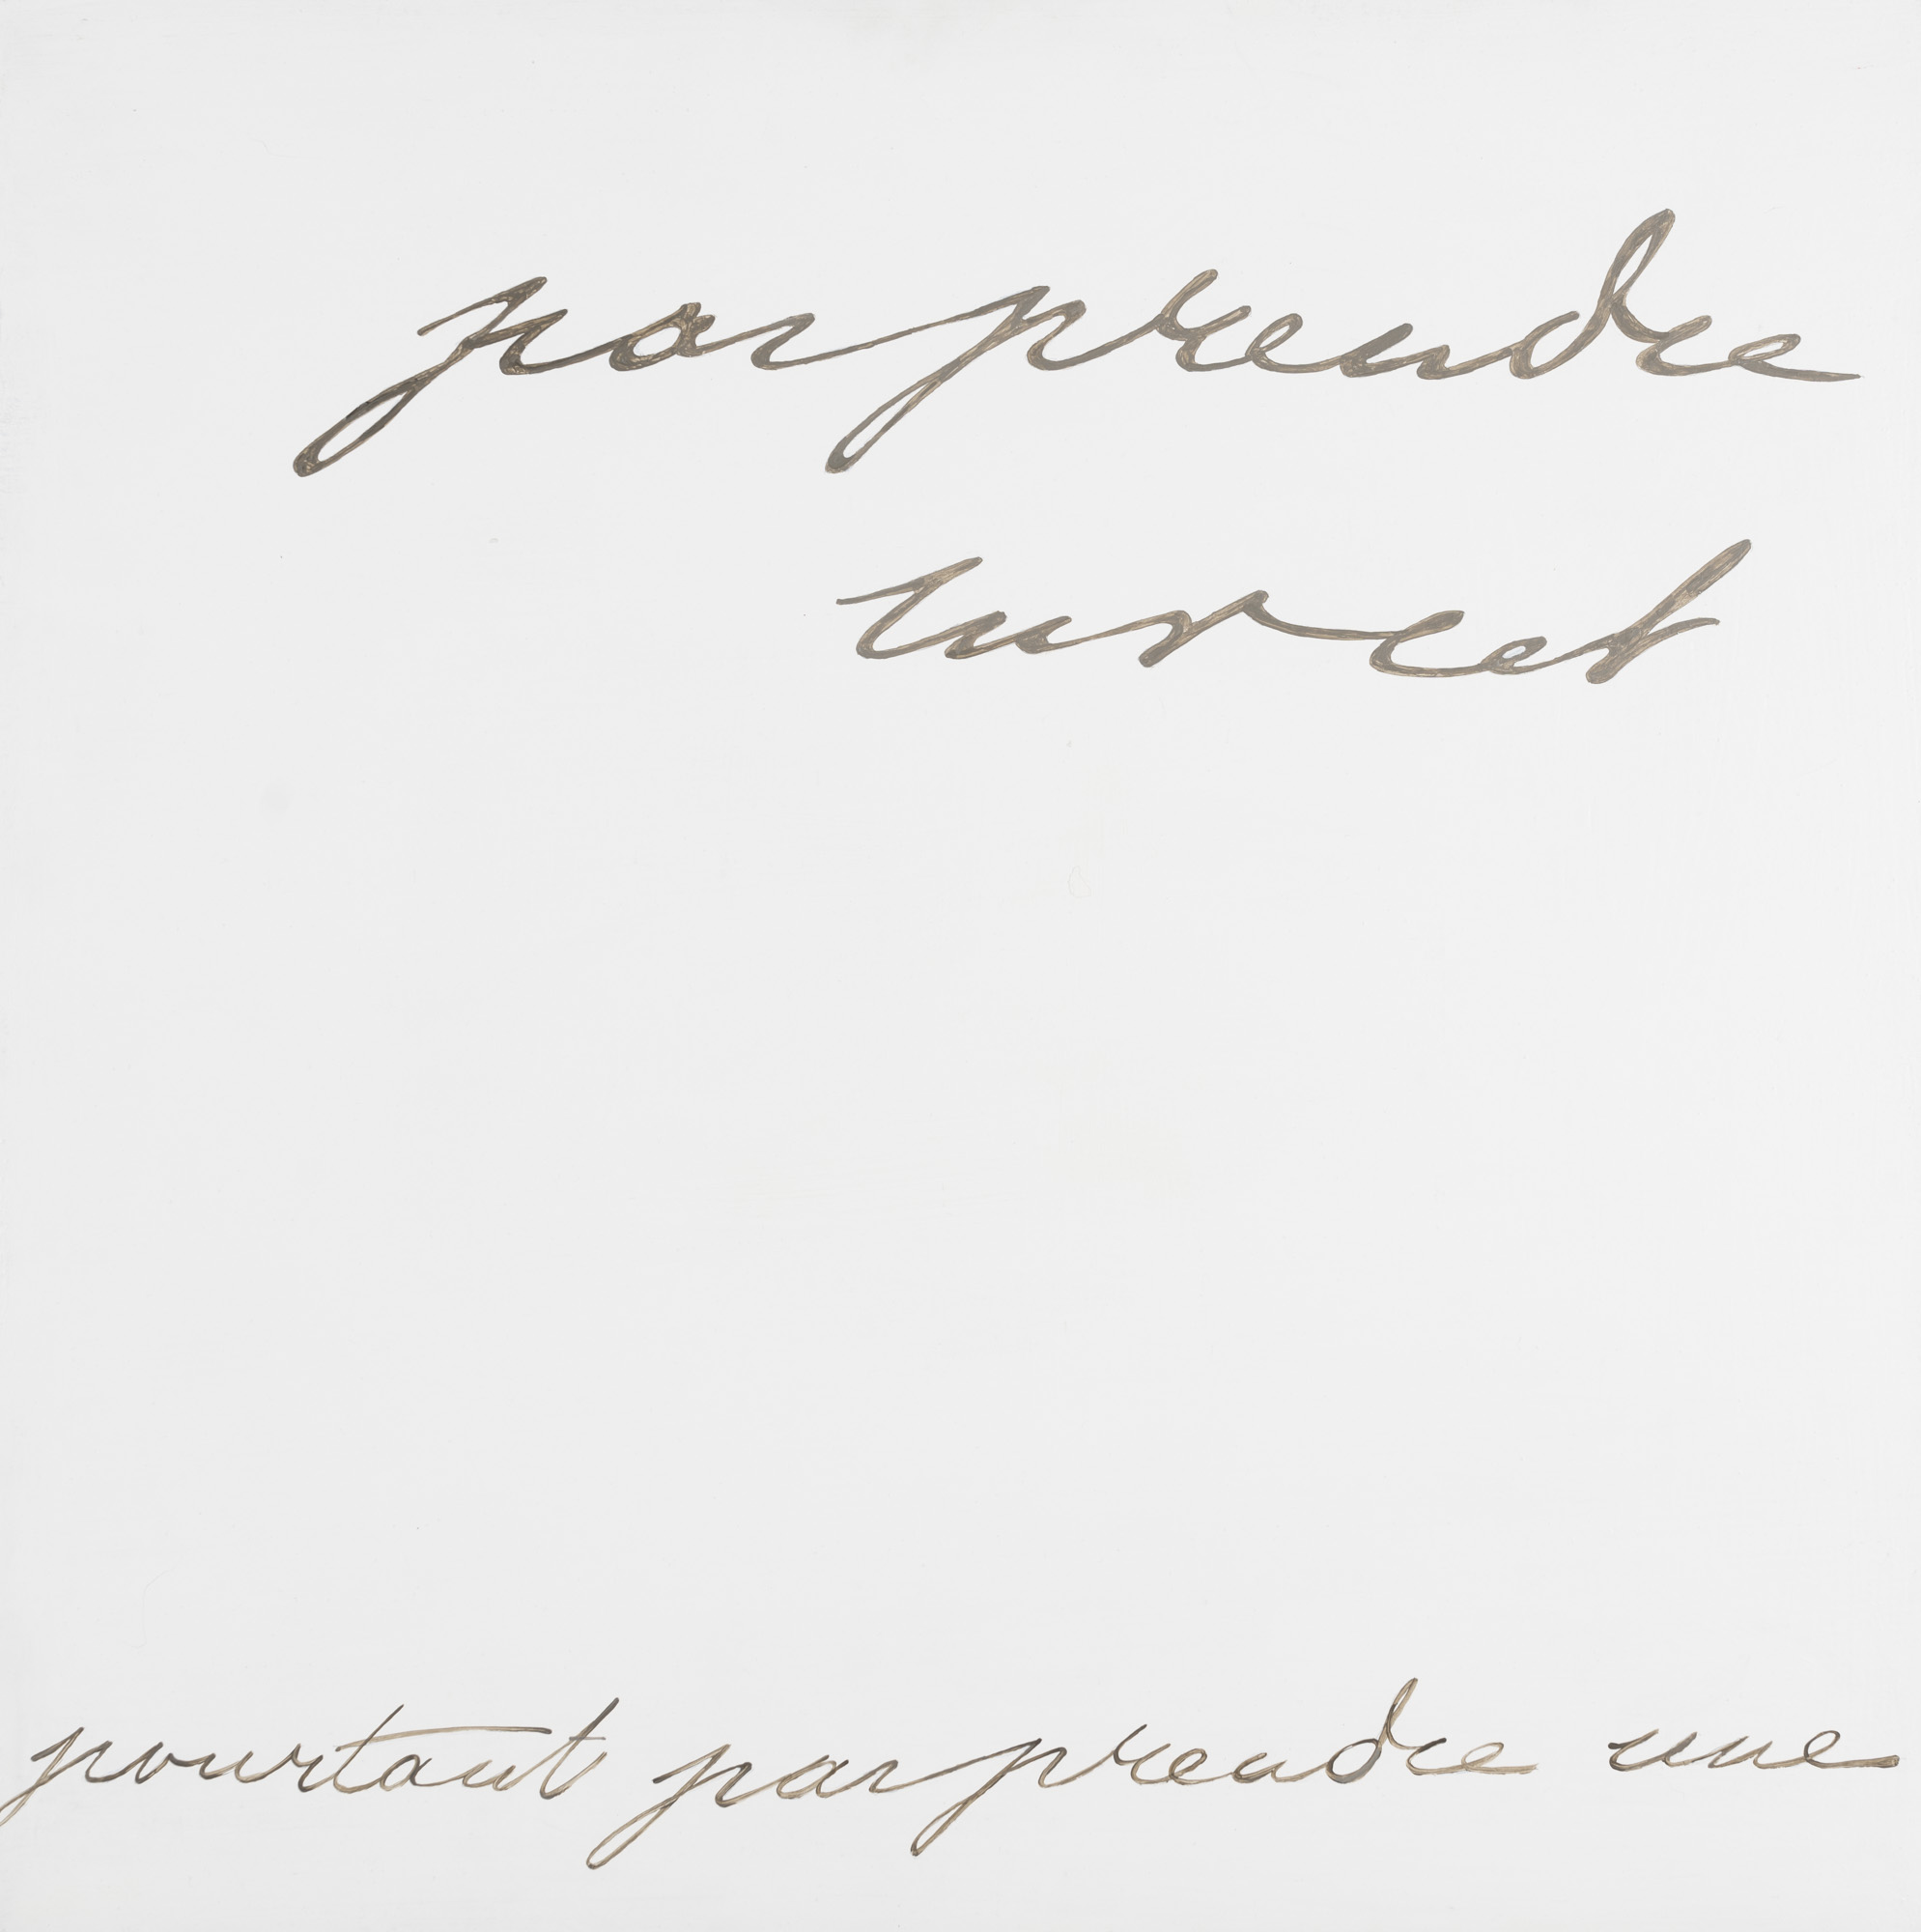 par prendre
pourtant par prendre une